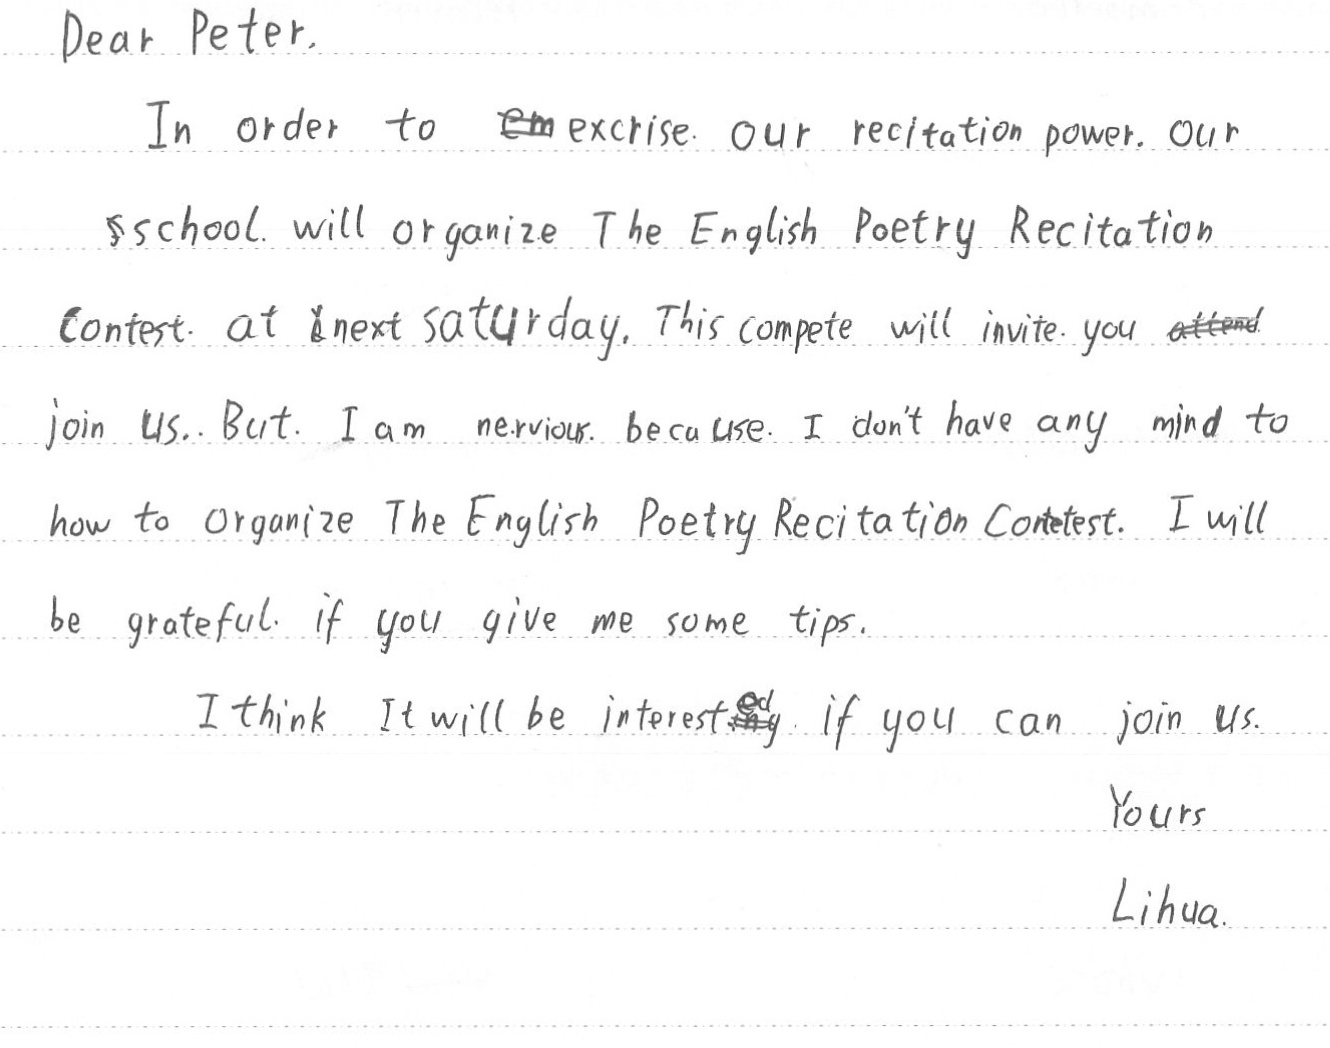 Dear Peter.
In order to excrise. our recitation power. our
school. will organize The English Poetry Recitation
Contest. at next saturday. This compete will invite. you
join us.. But. I am nervious. because. I don't have any mind to
how to organize The English Poetry Recitation Contest. I will
be grateful. if you give me some tips.
I think It will be interested. if you can join us.
Yours
Lihua.